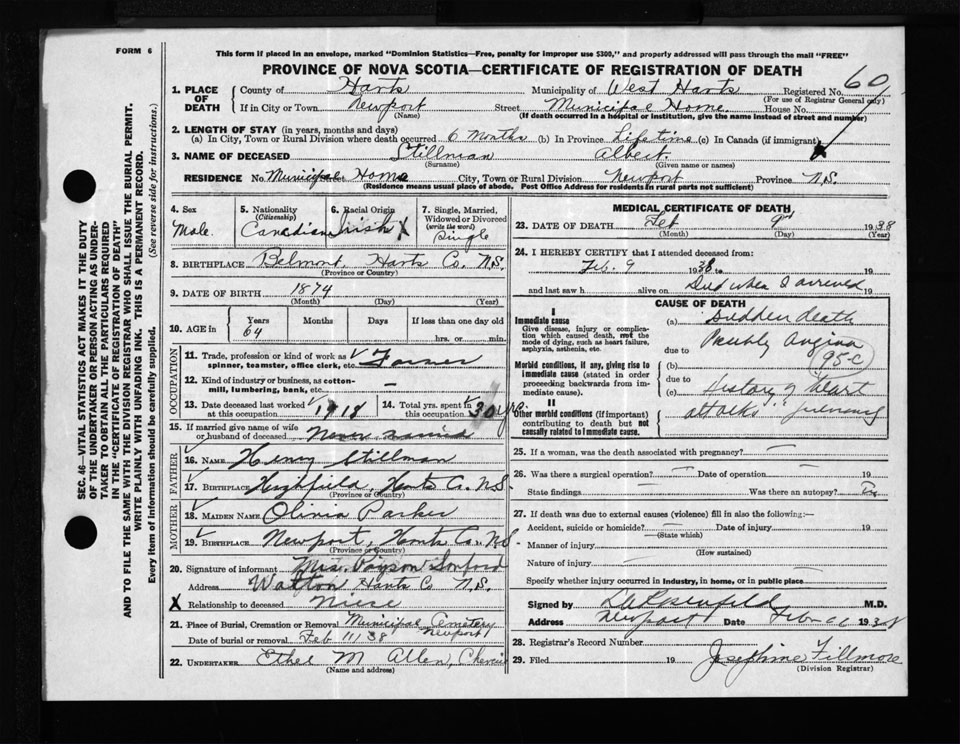 FORM 6
This form if placed in an envelope, marked "Dominion Statistics—Free, penalty for improper use $300," and properly addressed will pass through the mail "FREE"
PROVINCE OF NOVA SCOTIA—CERTIFICATE OF REGISTRATION OF DEATH
SEC. 46—VITAL STATISTICS ACT MAKES IT THE DUTY
OF THE UNDERTAKER OR PERSON ACTING AS UNDER-
TAKER TO OBTAIN ALL THE PARTICULARS REQUIRED
IN THE "CERTIFICATE OF REGISTRATION OF DEATH"
AND TO FILE THE SAME WITH THE DIVISION REGISTRAR WHO SHALL ISSUE THE BURIAL PERMIT.
WRITE PLAINLY WITH UNFADING INK. THIS IS A PERMANENT RECORD.
Every item of information should be carefully supplied. (See reverse side for instructions.)
1. PLACE OF DEATH County of Hants Municipality of West Hants Registered No. 60
(For use of Registrar General only)
If in City or Town Newport Street Municipal Home House No.
(Name) (If death occurred in a hospital or institution, give the name instead of street and number)
2. LENGTH OF STAY (in years, months and days)
(a) In City, Town or Rural Division where death occurred 6 Months (b) In Province Lifetime (c) In Canada (if immigrant) X
3. NAME OF DECEASED Stillman Albert
(Surname) (Given name or names)
RESIDENCE No. Municipal Street Home City, Town or Rural Division Newport Province N.S.
(Residence means usual place of abode. Post Office Address for residents in rural parts not sufficient)
4. Sex
Male
5. Nationality
(Citizenship)
Canadian
6. Racial Origin
Irish X
7. Single, Married,
Widowed or Divorced
(write the word)
Single
8. BIRTHPLACE Belmont, Hants Co. N.S.
(Province or Country)
9. DATE OF BIRTH 1874
(Month) (Day) (Year)
10. AGE in Years Months Days If less than one day old
64 hrs. or min.
OCCUPATION
11. Trade, profession or kind of work as
spinner, teamster, office clerk, etc. Farmer
12. Kind of industry or business, as cotton-
mill, lumbering, bank, etc. —
13. Date deceased last worked
at this occupation 1918
14. Total yrs. spent in
this occupation 30 yrs.
15. If married give name of wife
or husband of deceased Never married
FATHER
16. NAME Henry Stillman
17. BIRTHPLACE Highfield, Hants Co. N.S.
(Province or Country)
MOTHER
18. MAIDEN NAME Olivia Parker
19. BIRTHPLACE Newport, Hants Co. N.S.
(Province or Country)
20. Signature of informant Mrs. Payson Sanford
Address Walton Hants Co N.S.
X Relationship to deceased Niece
21. Place of Burial, Cremation or Removal Municipal Cemetery
Newport
Date of burial or removal Feb 11/38
22. UNDERTAKER Ethel M Allen,
(Name and address)
MEDICAL CERTIFICATE OF DEATH
23. DATE OF DEATH Feb 9 1938
(Month) (Day) (Year)
24. I HEREBY CERTIFY that I attended deceased from:
Feb. 9 1938 to 19
and last saw h alive on Died when I arrived 19
CAUSE OF DEATH
I
Immediate cause
Give disease, injury or complica-
tion which caused death, not the
mode of dying, such as heart failure,
asphyxia, asthenia, etc.
Morbid conditions, if any, giving rise to
immediate cause (stated in order
proceeding backwards from im-
mediate cause).
II
Other morbid conditions (if important)
contributing to death but not
causally related to immediate cause.
(a) Sudden death
due to Probably Angina
(b) 95-C
due to
(c) History of heart
attacks,
25. If a woman, was the death associated with pregnancy? —
26. Was there a surgical operation? — Date of operation — 19
State findings Was there an autopsy?
27. If death was due to external causes (violence) fill in also the following:—
Accident, suicide or homicide? — Date of injury 19
(State which)
Manner of injury
(How sustained)
Nature of injury —
Specify whether injury occurred in industry, in home, or in public place —
Signed by M.D.
Address Newport Date Feb 1938
28. Registrar's Record Number
29. Filed 19 Josephine Fillmore
(Division Registrar)